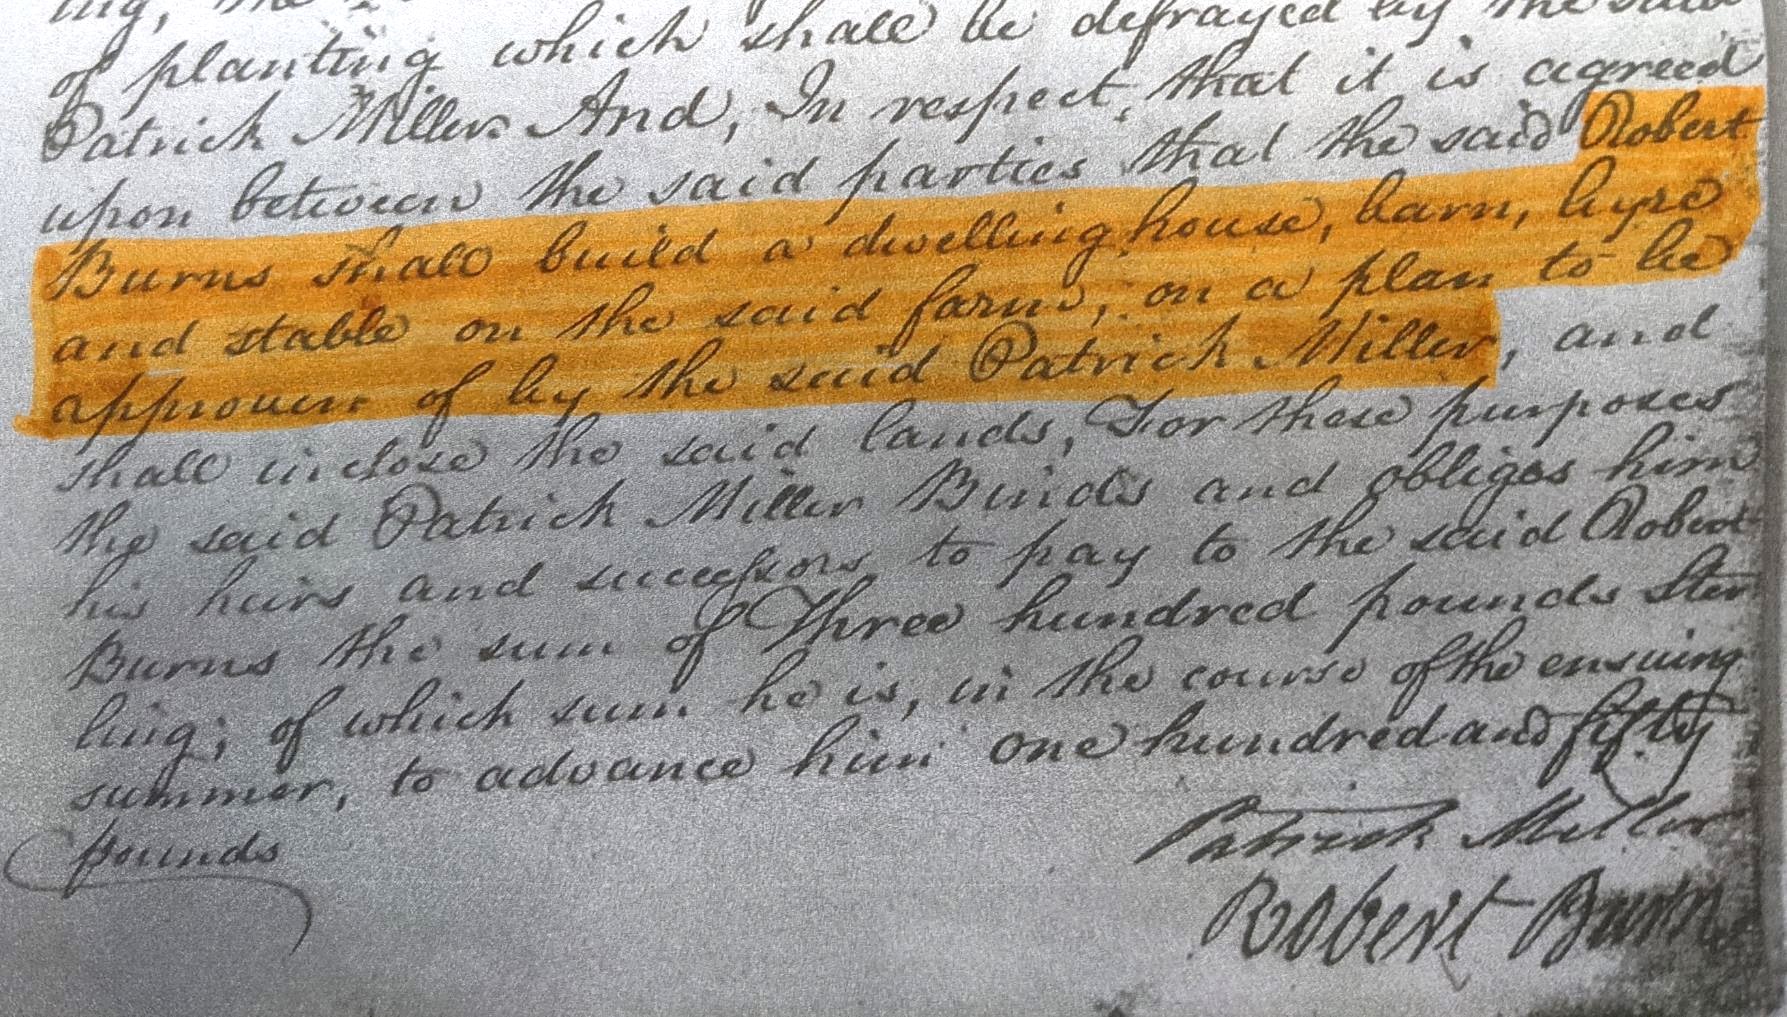 of planting which shall be defrayed by the said
Patrick Miller And, In respect, that it is agreed
upon between the said parties that the said Robert
Burns shall build a dwelling house, barn, byre
and stable on the said farm, on a plan to be
approven of by the said Patrick Miller, and
shall inclose the said lands, For these purposes
the said Patrick Miller Binds and obliges him
his heirs and successors, to pay to the said Robert
Burns the sum of Three hundred pounds Ster
ling; of which sum he is, in the course of the ensuing
summer, to advance him one hundred and fifty
pounds
Patrick Miller
Robert Burns